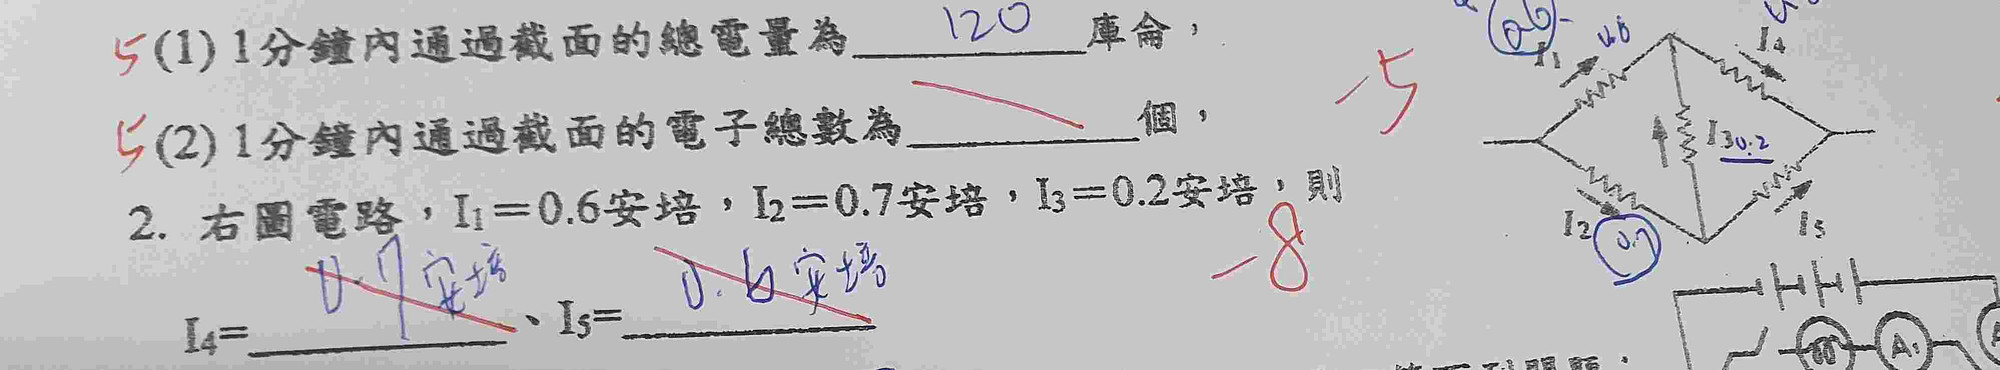 5(1) 1分鐘內通過截面的總電量為 120 庫侖，
5(2) 1分鐘內通過截面的電子總數為＿＿＿＿個，
-5
2. 右圖電路，I₁＝0.6安培，I₂＝0.7安培，I₃＝0.2安培，則
-8
I₄= 0.7安培、I₅= 0.6安培
I₁ 0.6
I₄
I₃ 0.2
I₂ 0.7
I₅
A₁